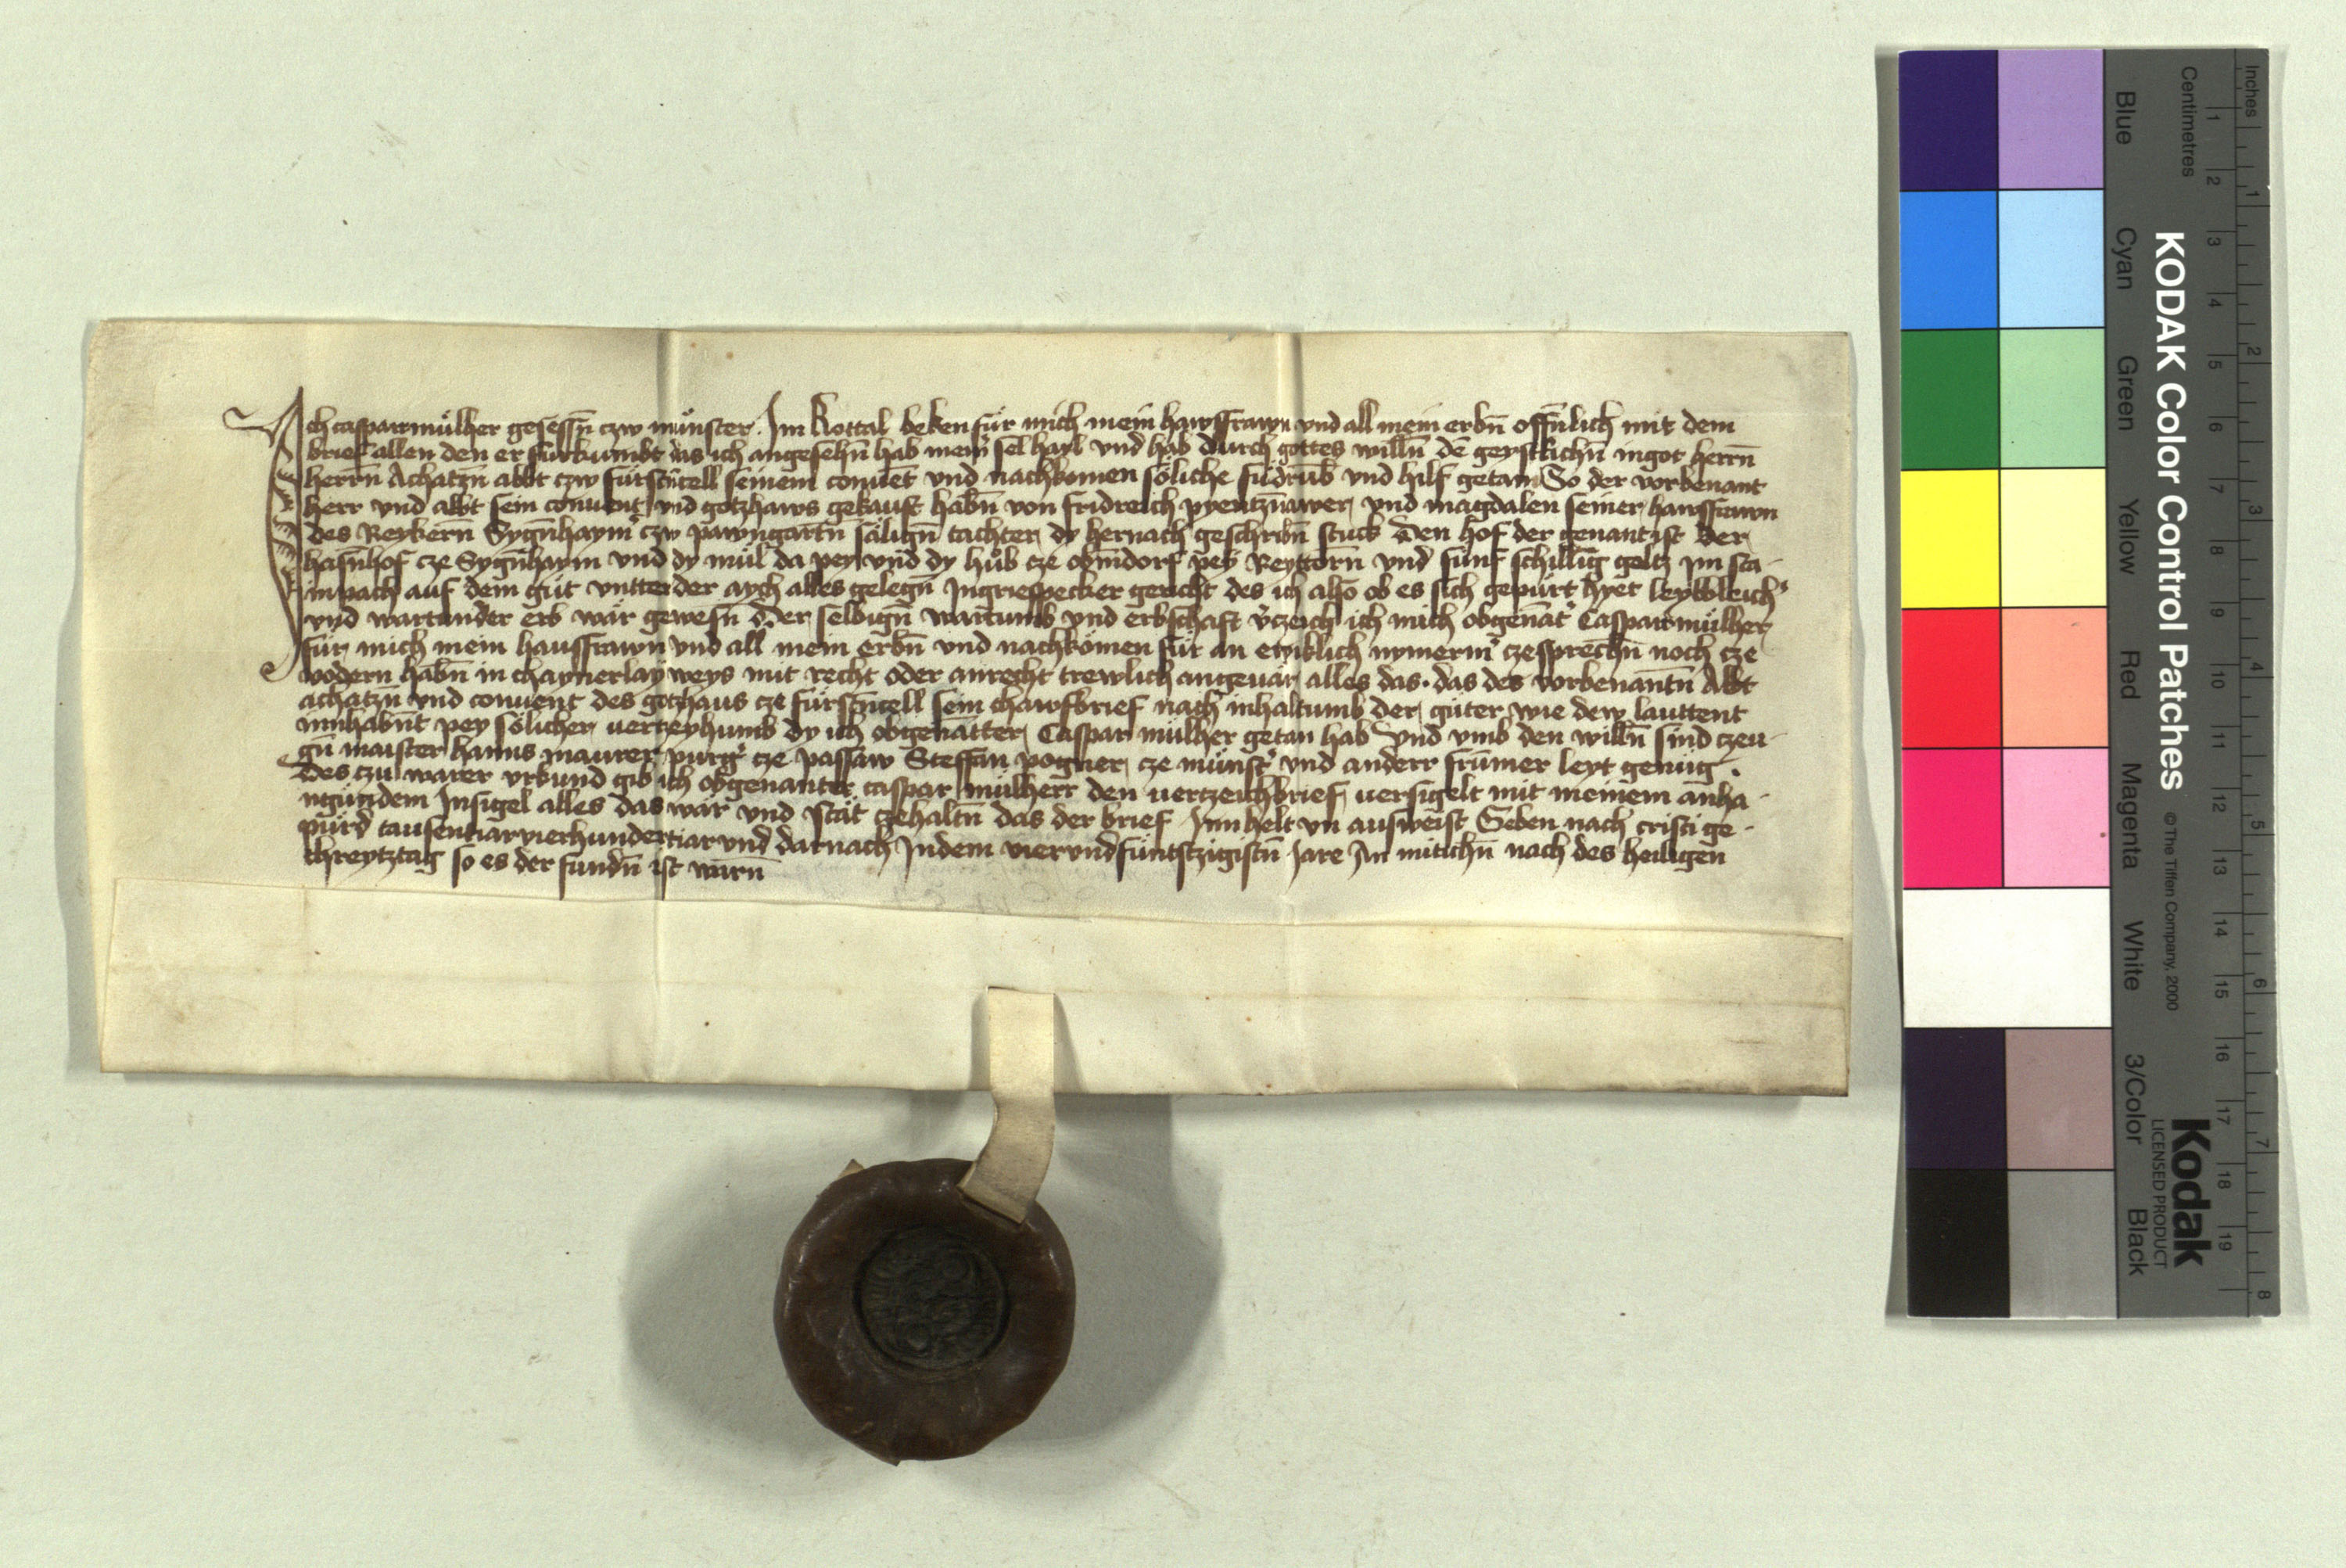 Ich casparmülher gesessn̄ czw münster Im Rottal beken für mich mein hawsfrawn vnd all mein erbn̄ offn̄lich mit dem
brief allen den er fürkumbt das ich angesehn̄ hab mein̄ sel hayl vnd hab durch gottes willn̄ dē geystlichn̄ in got herrn̄
herrn̄ Achatzn̄ abbt czw fürstn̄cell seinem conuēt vnd nachkomen söliche fudrūb vnd hilf getan So der vorbenant
herr vnd abbt sein conuent vnd gotzhaws gekauft habn̄ von fridreich pyentzn̄awer vnd magdalen seiner hawsfrawn
des Reykern̄ Sygn̄haym̄ czw pawngartn̄ sälign̄ tachter dy hernach geschribn̄ stuck Den hof der genant ist Der
hasn̄hof cze Sygn̄haym vnd dy mül da pey vnd dy hub cze obn̄dorf pey Reyttorn̄ vnd fünf schilling geltz Im sta-
inpach auf dem güt vntter der aych alles gelegn̄ In griespecker gericht des ich also ob es sich gepürt hyet leybbleich
vnd wartunder erb wär gewesn̄ Der selbign̄ wartumb vnd erbschaft vczeich ich mich obgenāt Casparmülher
für mich mein hausfrawn vnd all mein erbn̄ vnd nachkömen für an ewiklich nymerm̄ czesprechn̄ noch cze
vodern habn̄ in chaynerlay weys mit recht oder anrecht trewlich angeuär alles das das des vorbenantn̄ Abbt
achatzn̄ vnd conuent des gotzhaus cze fürstn̄cell sein chawfbrief nach inhaltumb der güter wie dew lauttent
innhabn̄t pey sölicher verzeyhumb dy ich obgenātter Caspar mülher getan hab Vnd vmb den willn̄ sind czeu-
gn̄ maister hanns maurer purg cze passaw Steffan pogner cze münst̄ vnd anderr frümer leyt genüg.
Des czu warer vrkund gib ich obgenanter caspar mülherr den uertzeichbrief uersigelt mit meinem anha-
ngūndem Insigel alles das war vnd stät czehaltn̄ das der brief Innhelt vn ausweist Geben nach cristi ge-
pürd tausentiar vierhundertiar vnd darnach Indem viervndfüntftzigistn̄ Jare An mitichn̄ nach des heiligen
chreytztag so es der fundn̄ ist warn̄
Inches
Centimetres
KODAK Color Control Patches
© The Tiffen Company, 2000
Kodak
LICENSED PRODUCT
Blue
Cyan
Green
Yellow
Red
Magenta
White
3/Color
Black
1 2 3 4 5 6 7 8 9 10 11 12 13 14 15 16 17 18 19
1 2 3 4 5 6 7 8